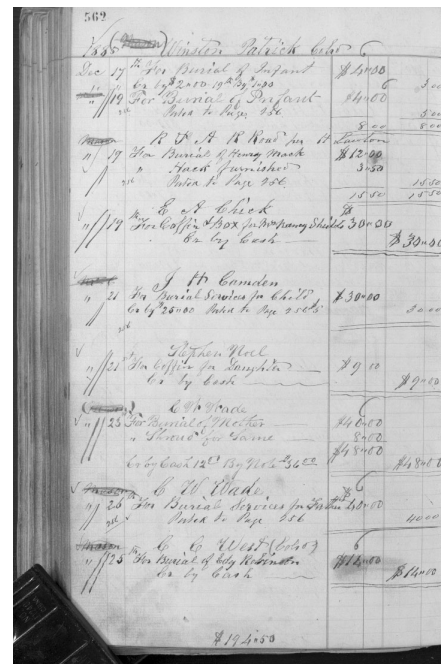 562
1885 Winston Patrick Colo
Dec 17th For Burial of Infant $4.00
Cr by $2.00 19th By 3.00 6 3.00
" 19 For Burial of Infant $4.00
Noted to Page 256 5.00
8.00 8.00
R & A R Road per H Lawton
" 19 For Burial of Henry Mack $12.00
" Hack furnished 3.50
Noted to Page 256 15.50
15.50 15.50
E A Cheek
" 19 For Coffin & Box for Mrs Nancy Shields 30.00
Cr by Cash $30.00
J H Camden
" 21 For Burial Services for Child $30.00
Cr by $25.00 Noted to Page 256 $5 30.00
Stephen Noel
" 21st For Coffin for Daughter $9.00
Cr by Cash $9.00
C W Wade
" 23 For Burial of Mother $40.00
" Shroud for Same 8.00
$48.00
Cr by Cash 12.00 By Note $36.00 $48.00
C W Wade
" 26th For Burial Services for Father 40.00
Noted to Page 256 40.00
C C West (Colo)
" 25th For Burial of Edy Robinson $14.00
Cr by Cash $14.00
$194.50